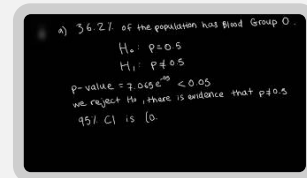 a) 36.2% of the population has Blood Group O.
H₀: p=0.5
H₁: p≠0.5
p-value = 7.065e⁻⁰⁵ <0.05
we reject H₀, there is evidence that p≠0.5
95% CI is (0.